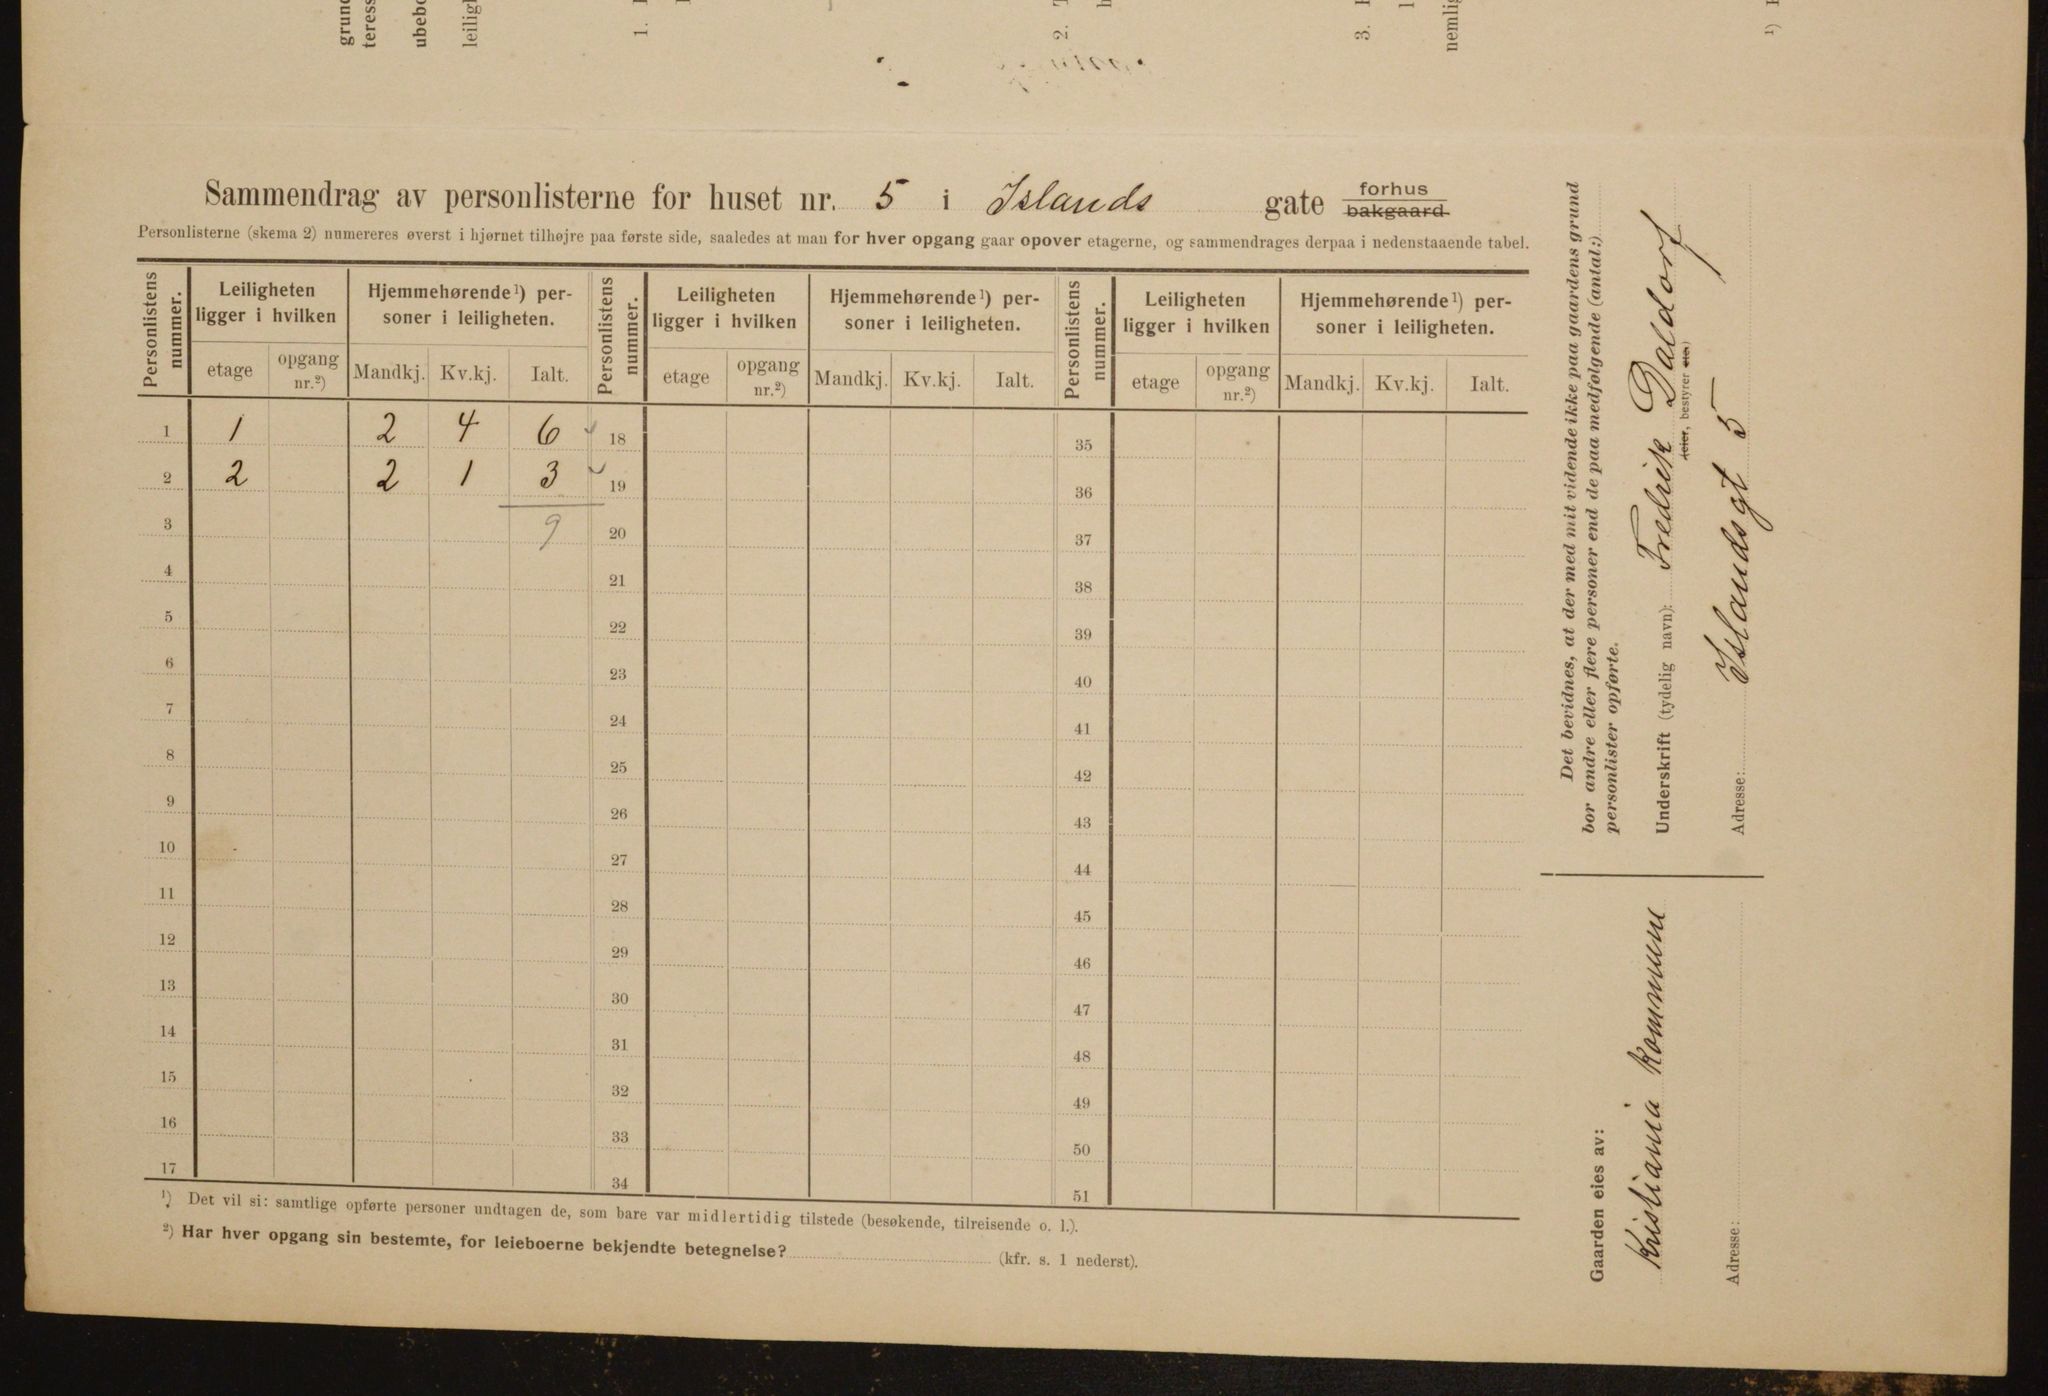 grund
teress
ubebo
leiligh
1.
2.
3.
nemlig
1)
Sammendrag av personlisterne for huset nr. 5 i Islands gate forhus bakgaard
Personlisterne (skema 2) numereres øverst i hjørnet tilhøjre paa første side, saaledes at man for hver opgang gaar opover etagerne, og sammendrages derpaa i nedenstaaende tabel.
Personlistens nummer. Leiligheten ligger i hvilken Hjemmehørende 1) personer i leiligheten. Personlistens nummer. Leiligheten ligger i hvilken Hjemmehørende 1) personer i leiligheten. Personlistens nummer. Leiligheten ligger i hvilken Hjemmehørende 1) personer i leiligheten.
etage opgang nr.2) Mandkj. Kv.kj. Ialt. etage opgang nr.2) Mandkj. Kv.kj. Ialt. etage opgang nr.2) Mandkj. Kv.kj. Ialt.
1 1 2 4 6 18 35
2 2 2 1 3 19 36
3 9 20 37
4 21 38
5 22 39
6 23 40
7 24 41
8 25 42
9 26 43
10 27 44
11 28 45
12 29 46
13 30 47
14 31 48
15 32 49
16 33 50
17 34 51
1) Det vil si: samtlige opførte personer undtagen de, som bare var midlertidig tilstede (besøkende, tilreisende o. l.).
2) Har hver opgang sin bestemte, for leieboerne bekjendte betegnelse? (kfr. s. 1 nederst).
Det bevidnes, at der med mit vidende ikke paa gaardens grund
bor andre eller flere personer end de paa medfølgende (antal:)
personlister opførte.
Underskrift (tydelig navn): Fredrik Daldorf
(eier, bestyrer etc.)
Adresse: Islandsgt 5
Gaarden eies av:
Kristiania Kommune
Adresse: